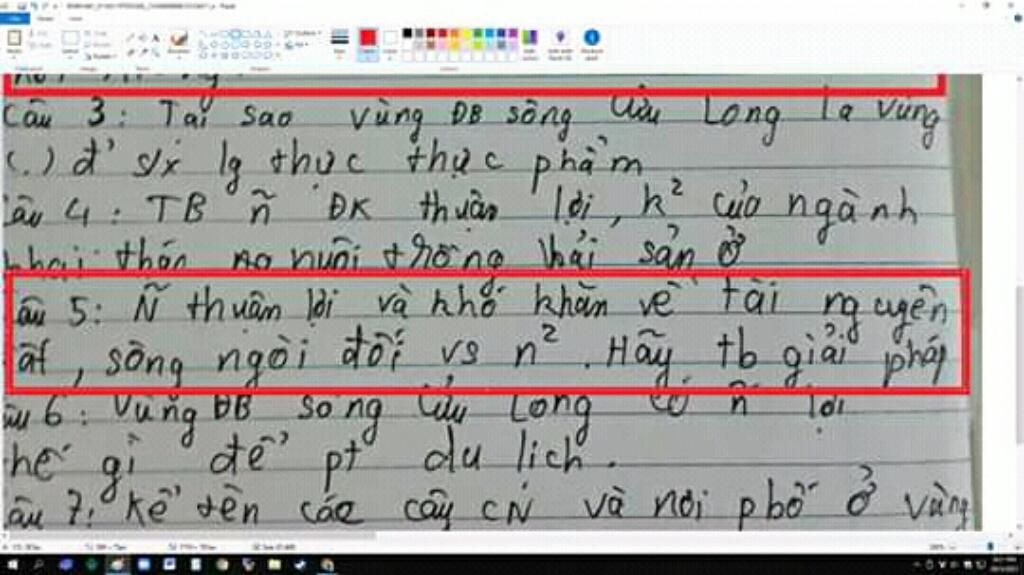 Câu 3: Tại sao vùng ĐB sông Cửu Long là vùng
(.) đ' s/x lg thực thực phẩm
âu 4: TB ñ ĐK thuận lợi, k² của ngành
nuôi trồng hải sản ở
âu 5: Ñ thuận lời và khó khăn về tài nguyên
ất, sông ngòi đối vs n². Hãy tb giải pháp
âu 6: Vùng ĐB sông Cửu Long có ñ lợi
hế gì để pt du lich.
âu 7: Kể tên các cây CN và nơi phố ở vùng